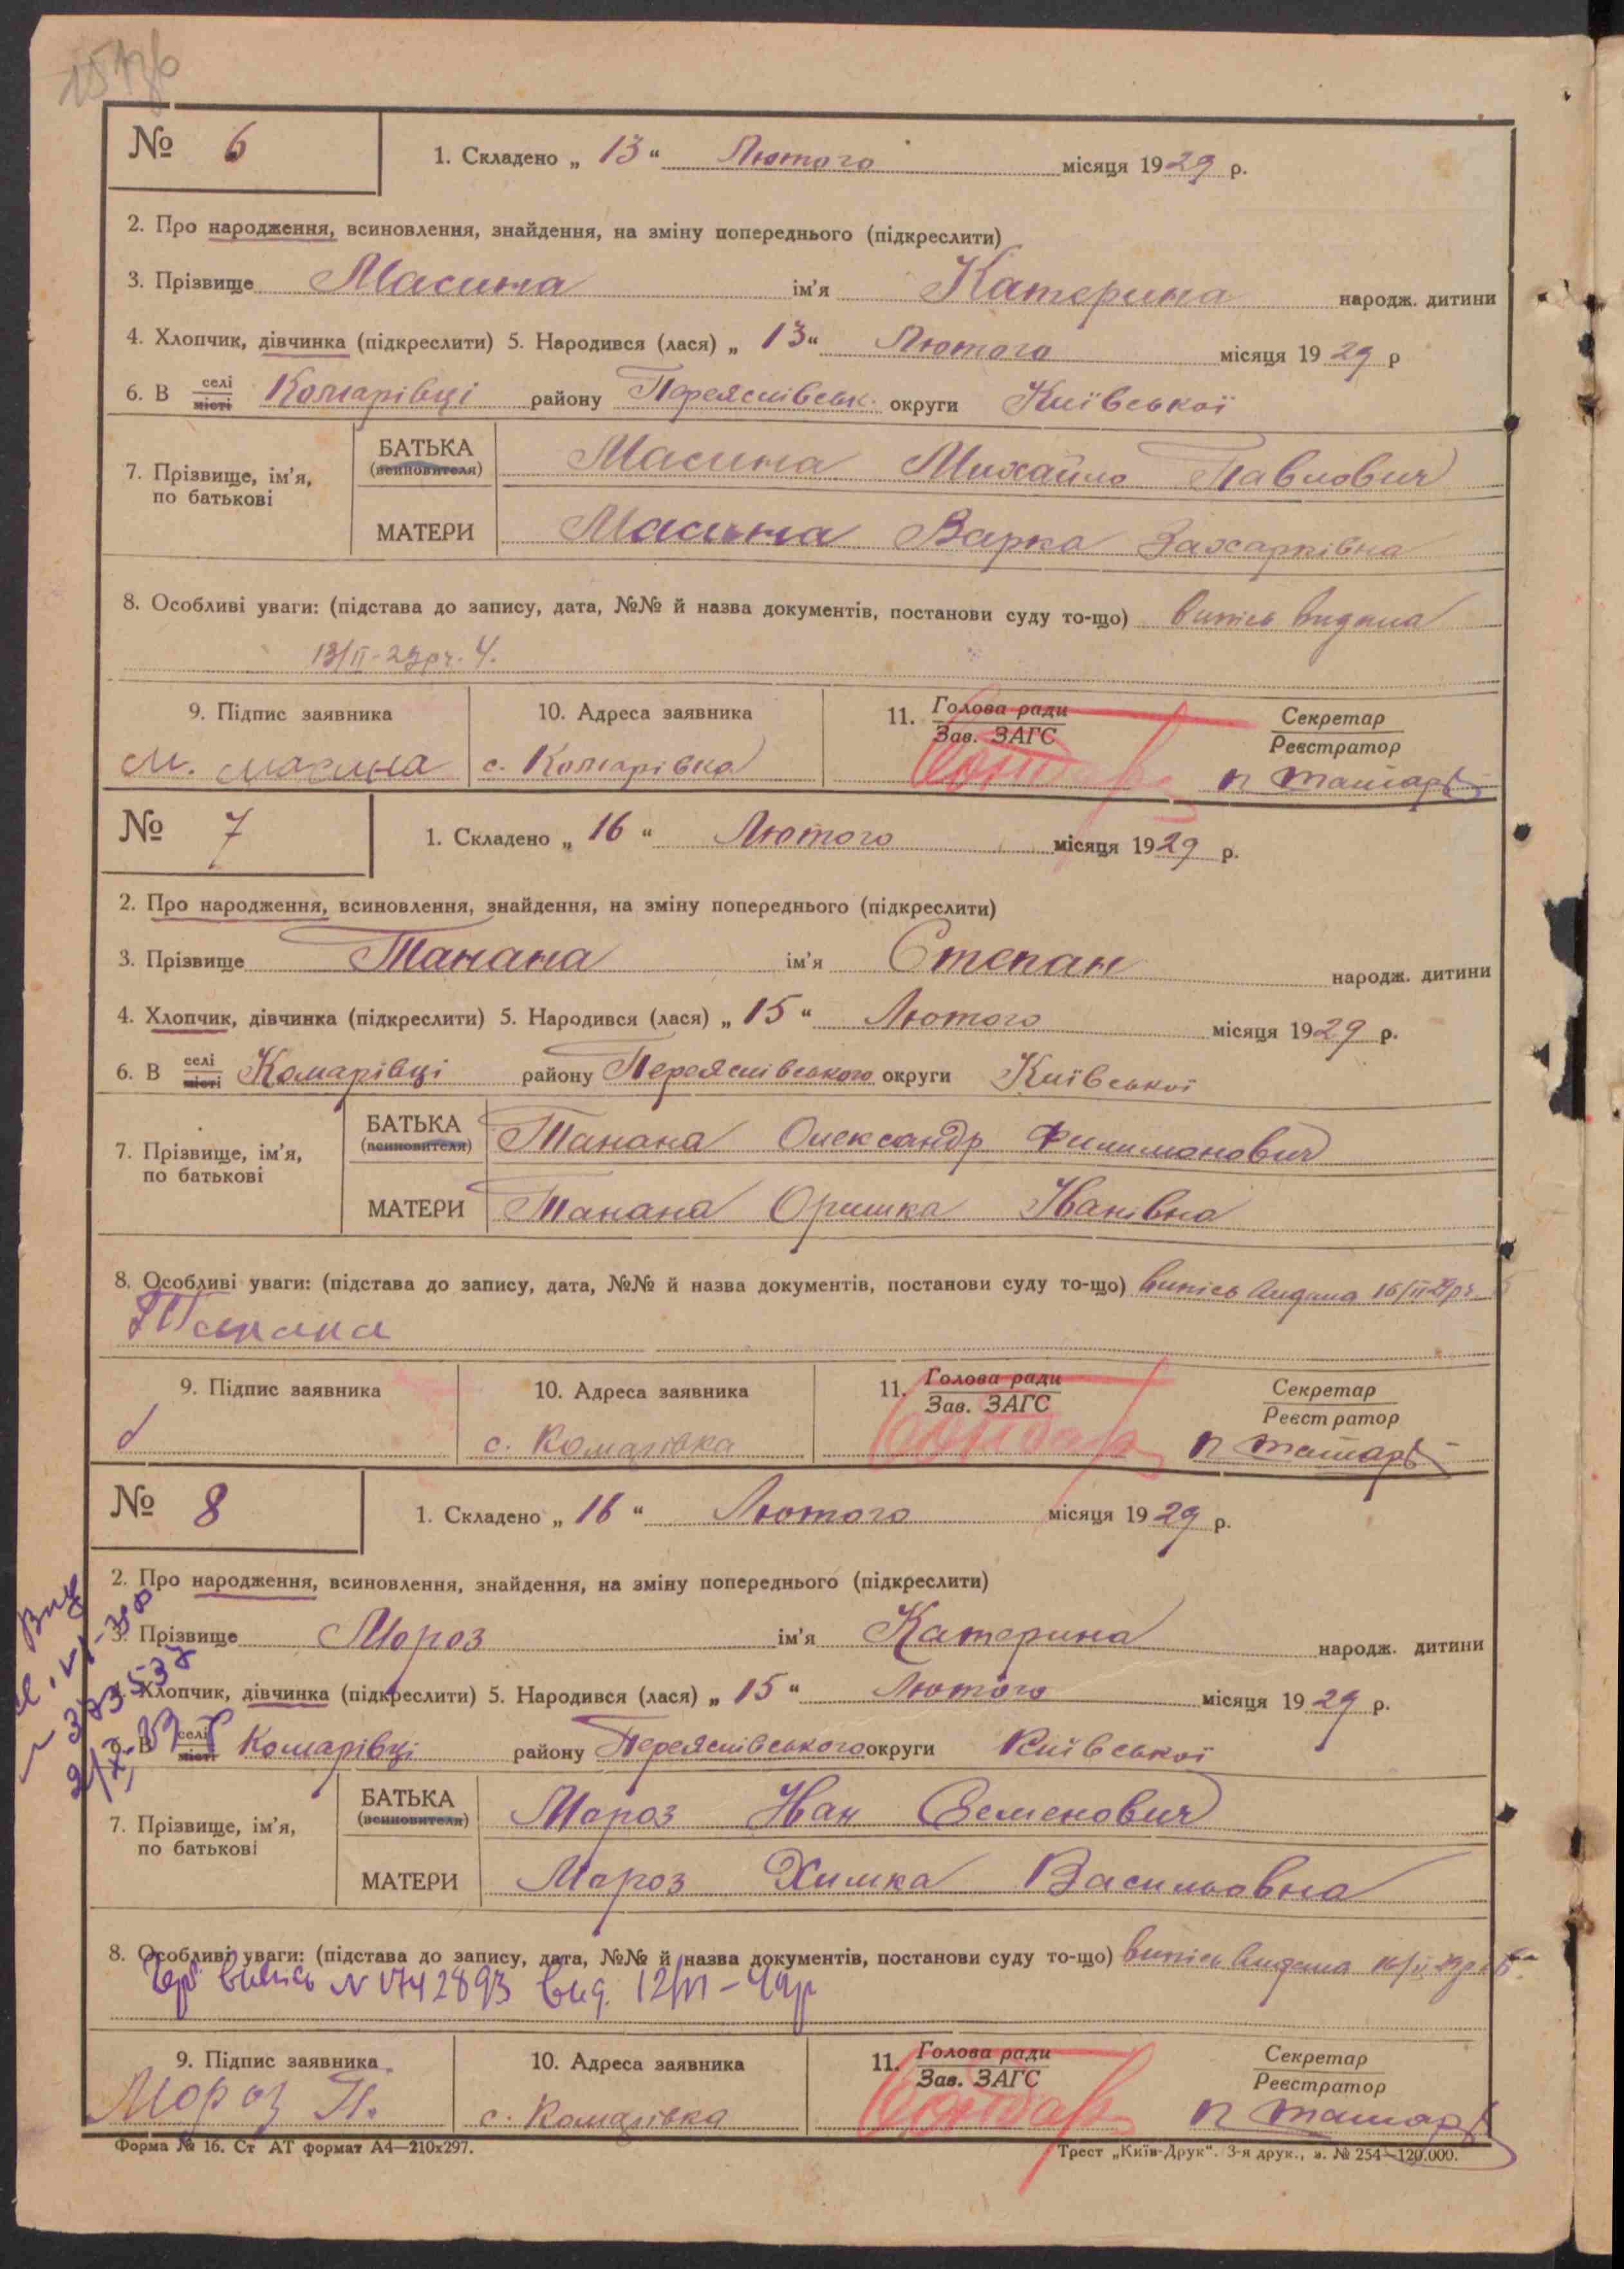 № 6
1. Складено „ 13 “ Лютого місяця 1929 р.
2. Про народження, всиновлення, знайдення, на зміну попереднього (підкреслити)
3. Прізвище Масина ім'я Катерина народж. дитини
4. Хлопчик, дівчинка (підкреслити) 5. Народився (лася) „ 13 “ Лютого місяця 1929 р
6. В селі місті Комарівці району Переяслівськ. округи Київської
7. Прізвище, ім'я, по батькові
БАТЬКА (всиновителя) Масина Михайло Павлович
МАТЕРИ Масина Варка Захарківна
8. Особливі уваги: (підстава до запису, дата, №№ й назва документів, постанови суду то-що) випісь видана
13/II-29р. ч. 4.
9. Підпис заявника 10. Адреса заявника 11. Голова ради Зав. ЗАГС Секретар Реєстратор
М. Масина с. Комарівка
№ 7
1. Складено „ 16 “ Лютого місяця 1929 р.
2. Про народження, всиновлення, знайдення, на зміну попереднього (підкреслити)
3. Прізвище Танана ім'я Степан народж. дитини
4. Хлопчик, дівчинка (підкреслити) 5. Народився (лася) „ 15 “ Лютого місяця 1929 р.
6. В селі місті Комарівці району Переяслівського округи Київської
7. Прізвище, ім'я, по батькові
БАТЬКА (всиновителя) Танана Олександр Филимонович
МАТЕРИ Танана Оришка Іванівна
8. Особливі уваги: (підстава до запису, дата, №№ й назва документів, постанови суду то-що) випісь видана 16/II 29р.
Танана
9. Підпис заявника 10. Адреса заявника 11. Голова ради Зав. ЗАГС Секретар Реєстратор
с. Комарівка
№ 8
1. Складено „ 16 “ Лютого місяця 1929 р.
2. Про народження, всиновлення, знайдення, на зміну попереднього (підкреслити)
3. Прізвище Мороз ім'я Катерина народж. дитини
4. Хлопчик, дівчинка (підкреслити) 5. Народився (лася) „ 15 “ Лютого місяця 1929 р.
6. В селі місті Комарівці району Переяслівського округи Київської
7. Прізвище, ім'я, по батькові
БАТЬКА (всиновителя) Мороз Іван Семенович
МАТЕРИ Мороз Химка Васильовна
8. Особливі уваги: (підстава до запису, дата, №№ й назва документів, постанови суду то-що) випісь видана 16/II 29р.
випісь N 1742893 вид.
9. Підпис заявника 10. Адреса заявника 11. Голова ради Зав. ЗАГС Секретар Реєстратор
Мороз с. Комарівка
Форма № 16. Ст АТ формат А4—210х297. Трест „Київ-Друк“. 3-я друк., з. № 254—120.000.